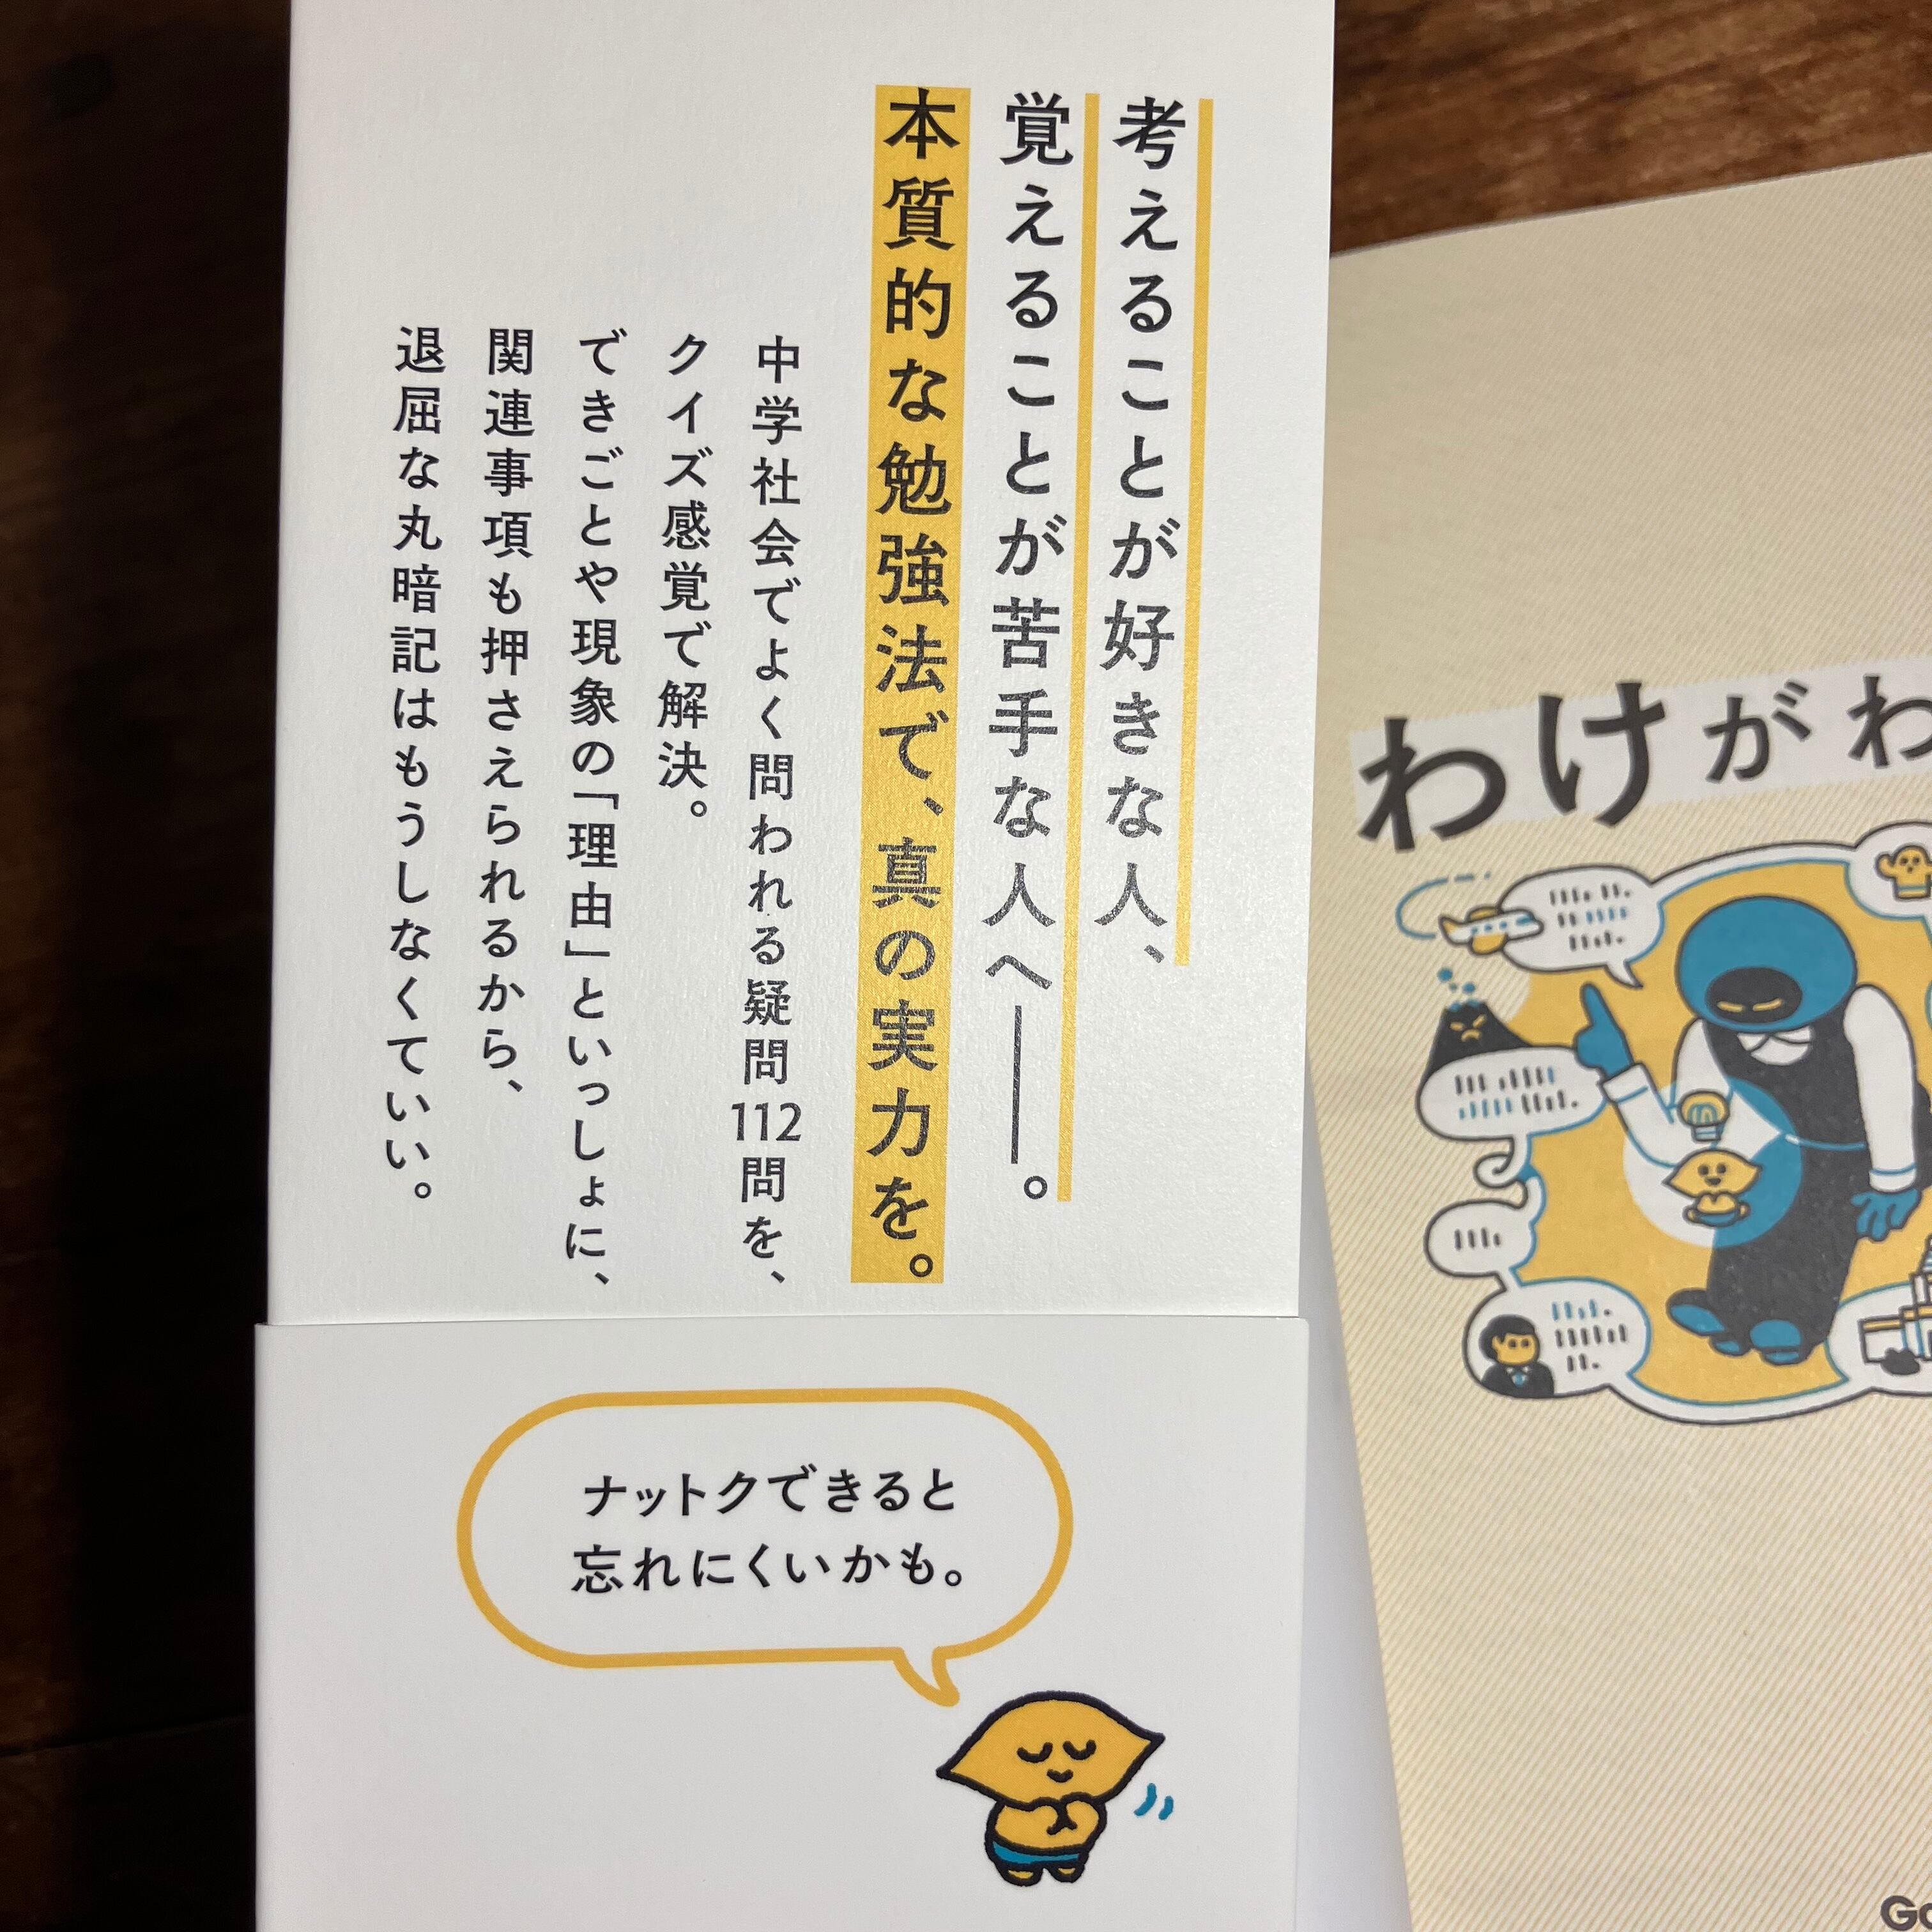 考えることが好きな人、
覚えることが苦手な人へ――。
本質的な勉強法で、真の実力を。
中学社会でよく問われる疑問112問を、
クイズ感覚で解決。
できごとや現象の「理由」といっしょに、
関連事項も押さえられるから、
退屈な丸暗記はもうしなくていい。
ナットクできると
忘れにくいかも。
わけがわ
G